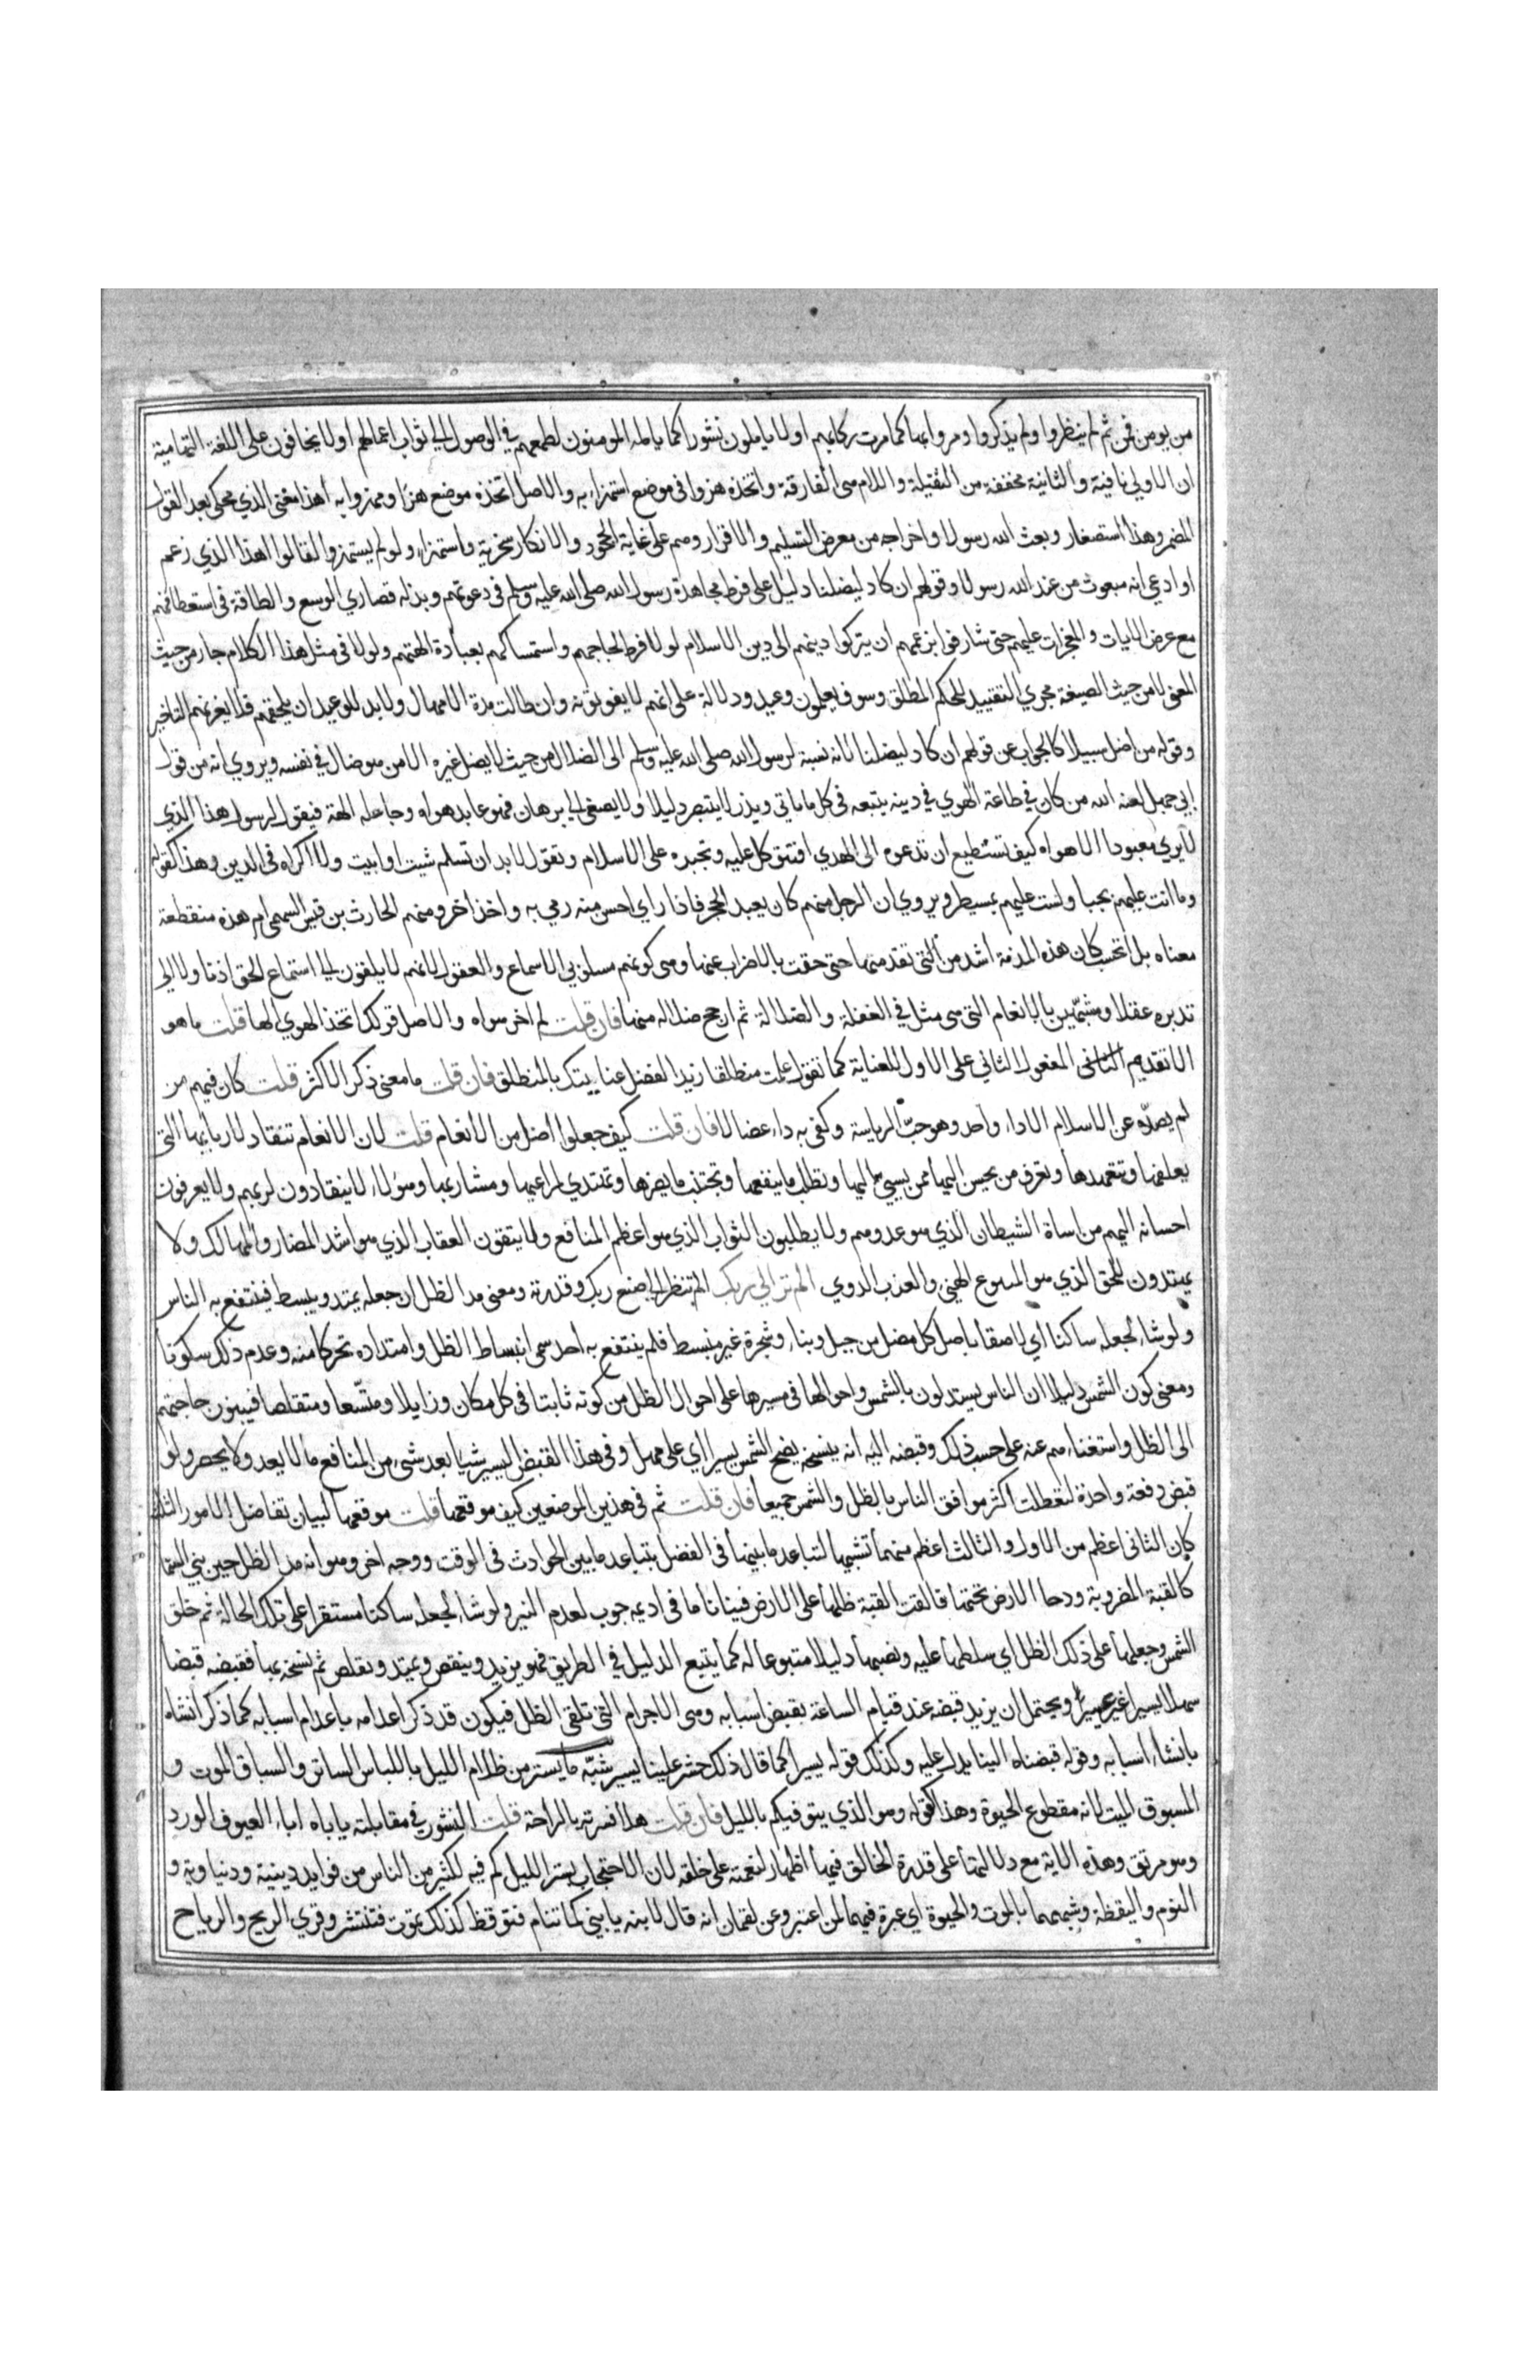 من يومن فمن ثم لم ينظروا ولم يذكروا ومروا بها كما مرت ركابهم او لا ياملون نشورا كما يامله المومنون لطمعهم في الوصول الي ثواب اعمالهم او لا يخافون علي اللغة التهامية
ان الاولي نافية والثانية مخففة من الثقيلة واللام هي الفارقة واتخذه هزوا في موضع استهزاء به والاصل اتخذه موضع هزا ومهزوا به أهذا معني الذي محكي بعد القول
المضمر وهذا استصغار وبعث الله رسولا واخراجه من معرض التسليم والاقرار وهم علي غاية الجحود والانكار سخرية واستهزاء ولو لم يستهزوا لقالوا اهذا الذي زعم
او ادعي انه مبعوث من عند الله رسولا وقولهم ان كاد ليضلنا دليل علي فرط مجاهدة رسول الله صلي الله عليه وسلم في دعوتهم وبذله قصاري الوسع والطاقة في استعطافهم
مع عرض الايات والمعجزات عليهم حتي شارفوا بزعمهم ان يتركوا دينهم الي دين الاسلام لولا فرط لجاجهم واستمساكهم بعبادة الهتهم ولولا في مثل هذا الكلام جار من حيث
المعني لا من حيث الصيغة مجري التقييد للحكم المطلق وسوف يعلمون وعيد ودلالة علي انهم لا يفوتونه وان طالت مدة الامهال ولا بد للوعيد ان يلحقهم فلا يغرنهم التاخير
وقوله من اضل سبيلا كالجواب عن قولهم ان كاد ليضلنا لانه نسبة لرسول الله صلي الله عليه وسلم الي الضلال من حيث لا يضل غيره الا من هو ضال في نفسه ويروي انه من قول
ابي جهل لعنه الله من كان في طاعة الهوي في دينه يتبعه في كل ما ياتي ويذر لا يتبصر دليلا ولا يصغي الي برهان فهو عابد هواه وجاعله الهة فيقول لرسوله هذا الذي
لا يري معبودا الا هواه كيف تستطيع ان تدعوه الي الهدي افتتوكل عليه وتجبره علي الاسلام وتقول لا بد ان تسلم شيت او ابيت ولا اكراه في الدين وهذا كقوله
وما انت عليهم بجبار لست عليهم بمسيطر ويروي ان الرجل منهم كان يعبد الحجر فاذا راي احسن منه رمي به واخذ اخر ومنهم الحارث بن قيس السهمي ام هذه منقطعة
معناه بل تحسب كان هذه المذمة اشد من التي تقدمتها حتي حقت بالاضراب عنها وهي كونهم مسلوبي الاسماع والعقول لانهم لا يلقون الي استماع الحق اذنا ولا الي
تدبره عقلا ومشبهين بالانعام التي هي مثل في الغفلة والضلالة ثم ارجح ضلالة منها فان قلت لم اخر هواه والاصل قولك اتخذ الهوي الها قلت ما هو
الا تقديم المفعول الثاني علي الاول للعناية كما تقول علمت منطلقا زيدا لفضل عنايتك بالمنطلق فان قلت ما معني ذكر الاكثر قلت كان فيهم من
لم يصده عن الاسلام الا داء واحد وهو حب الرياسة وكفي به داء عضالا فان قلت كيف جعلوا أضل من الأنعام قلت لان الانعام تنقاد لاربابها التي
يعلفها وتتعهدها وتعرف من يحسن اليها ممن يسيي اليها وتطلب ما ينفعها وتجتنب ما يضرها وتهتدي لمراعيها ومشاربها وهؤلاء لا ينقادون لربهم ولا يعرفون
احسانه اليهم من اساة الشيطان الذي هو عدوهم ولا يطلبون الثواب الذي هو اعظم المنافع ولا يتقون العقاب الذي هو اشد المضار والمهالك ولا
يهتدون للحق الذي هو المشرع الهني والعذب الروي الم تر الي ربك الم تنظر الي صنع ربك وقدرته ومعني مد الظل ان جعله يمتد وينبسط فينتفع به الناس
ولو شاء لجعله ساكنا اي لاصقا باصل كل مضل من جبل وبناء وشجرة غير منبسط فلم ينتفع به احد سمي انبساط الظل وامتداده تحركا منه وعدم ذلك سكونا
ومعني كون الشمس دليلا ان الناس يستدلون بالشمس واحوالها في مسيرها علي احوال الظل من كونه ثابتا في كل مكان وزايلا ومتسعا ومتقلصا فيبنون حاجتهم
الي الظل واستغناءهم عنه علي حسب ذلك وقبضه اليه انه ينسخه بضح الشمس يسيرا اي علي مهل وفي هذا القبض اليسير شيا بعد شيء من المنافع ما لا يعد ولا يحصر ولو
قبض دفعة واحدة لتعطلت أكثر موافق الناس بالظل والشمس جميعا فان قلت ثم في هذين الموضعين كيف موقعها قلت موقعها لبيان تفاضل الامور الثلثة
كان الثاني اعظم من الاول والثالث اعظم منهما تشبيها لتباعد ما بينها في الفضل بتباعد ما بين الحوادث في الوقت ووجه اخر وهو انه مد الظل حين بني السما
كالقبة المضروبة ودحا الارض تحتها فالقت القبة ظلها علي الارض فينانا ما في اديمه جوب لعدم النير ولو شاء لجعله ساكنا مستقرا علي تلك الحالة ثم خلق
الشمس وجعلها علي ذلك الظل اي سلطها عليه ونصبها دليلا متبوعا له كما يتبع الدليل في الطريق فهو يزيد وينقص ويمتد ويقلص ثم نسخه بها فقبضه قبضا
سهلا يسيرا غير عسير ويحتمل ان يريد قبضه عند قيام الساعة بقبض اسبابه وهي الاجرام التي تلقي الظل فيكون قد ذكر اعدامه باعدام اسبابه كما ذكر انشاه
بانشاء اسبابه وقوله قبضناه الينا يدل عليه وكذلك قوله يسيرا كما قال ذلك حشر علينا يسير شبه ما يستر من ظلام الليل باللباس الساتر والسباق الموت و
المسبوق الميت لانه مقطوع الحيوة وهذا كقوله وهو الذي يتوفيكم بالليل فان قلت هلا فسرته بالراحة قلت النشور في مقابلته ياباه اباء العيوف الورد
وهو مرتق وهذه الاية مع دلالتها علي قدرة الخالق فيها اظهار لنعمته علي خلقه لان الاحتجاب بستر الليل كم فيه لكثير من الناس من فوايد دينية ودنياوية و
النوم واليقظة وشبههما بالموت والحيوة اي عبرة فيهما لمن اعتبر وعن لقمان انه قال لابنه يا بني كما تنام فتوقظ كذلك تموت فتنتشر وقري الريح والرياح